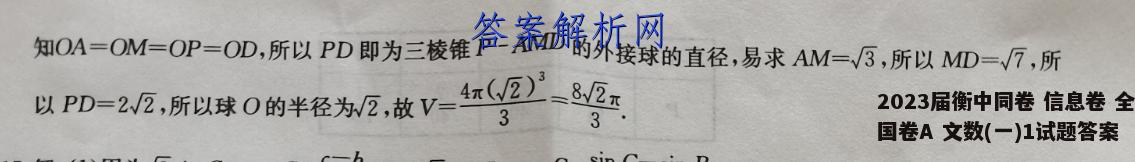 答案解析网
知OA=OM=OP=OD,所以 PD 即为三棱锥P-AMD的外接球的直径,易求 AM=√3,所以 MD=√7,所
以 PD=2√2,所以球 O 的半径为√2,故 V=4π(√2)³/3=8√2π/3.
2023届衡中同卷 信息卷 全
国卷A 文数(一)1试题答案